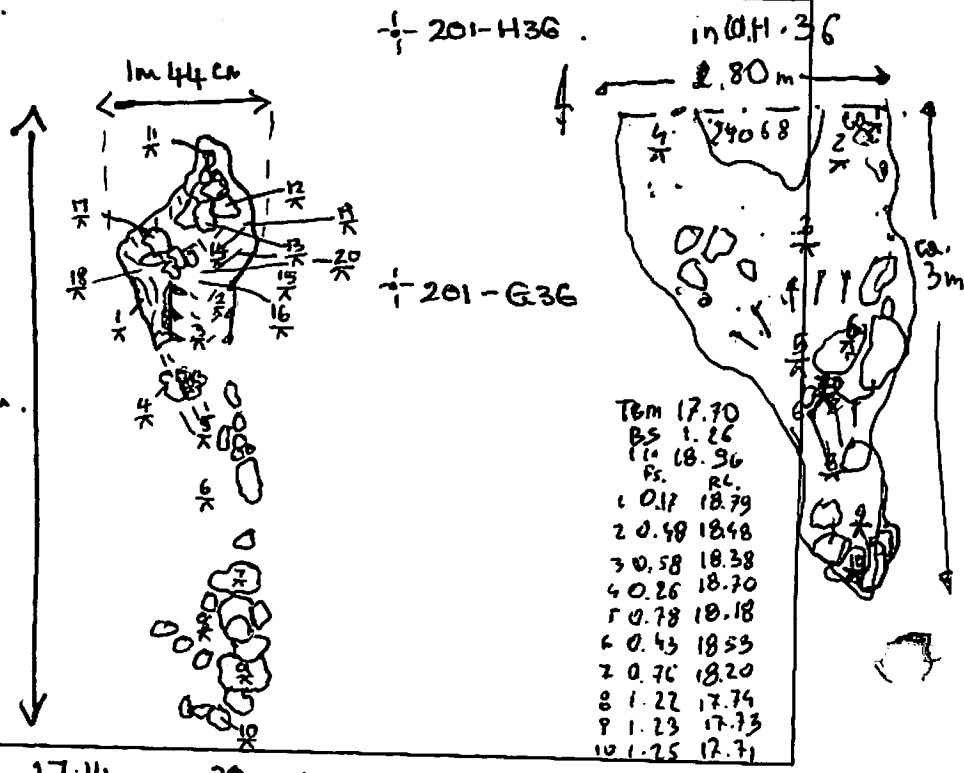 201-H36.
in Q.H.36
1m 44 cm
2.80 m
4 24068 2
11
12
17
19
13
14
3
20
18
15
ca. 3m
201-G36
1 2 16
3
5 6
4
5
TBM 17.70
BS 1.26
18.96
FS. RL.
1 0.17 18.79
2 0.48 18.48
3 0.58 18.38
4 0.26 18.70
5 0.78 18.18
6 0.43 18.53
7 0.76 18.20
8 1.22 17.74
9 1.23 17.73
10 1.25 17.71
6
7
8
9
10
6
7
8
9
10